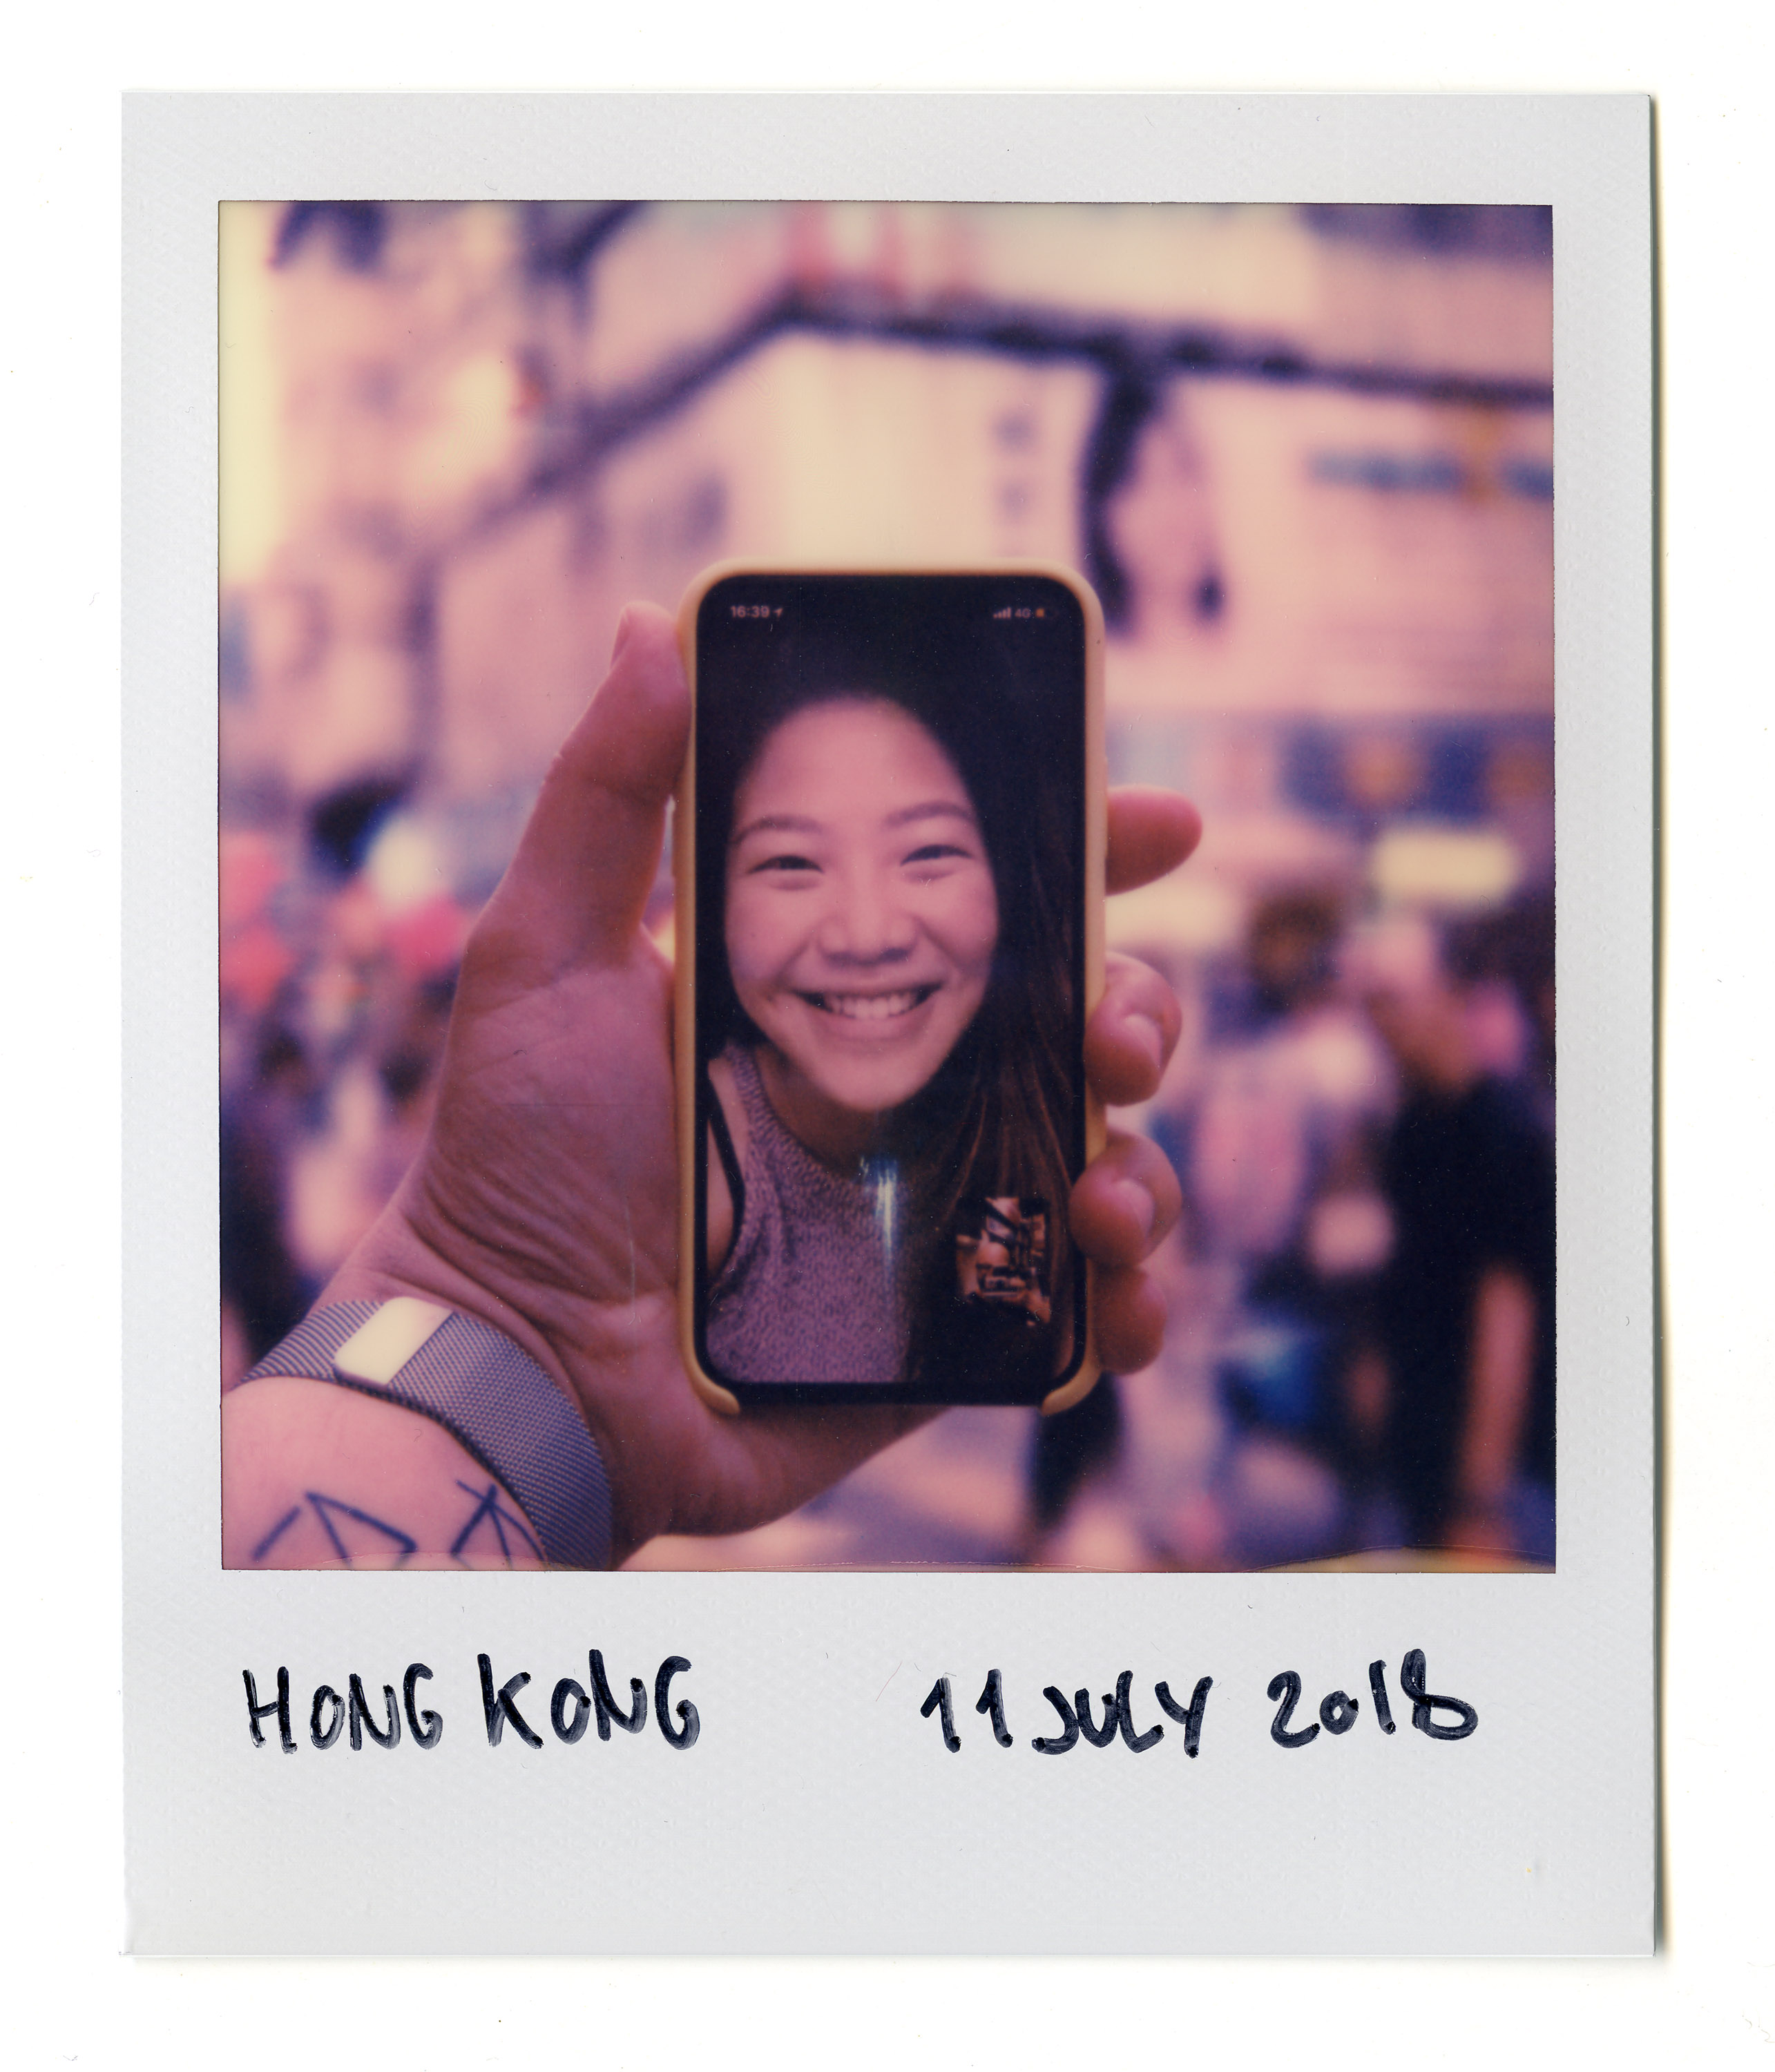 16:39
4G
HONG KONG 11 JULY 2018